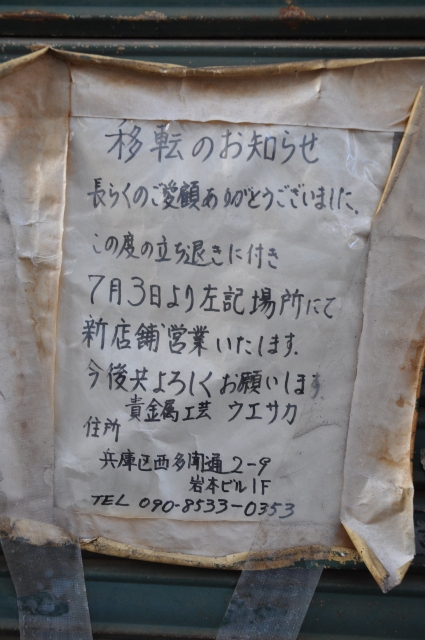 移転のお知らせ
長らくのご愛顧ありがとうございました。
この度の立ち退きに付き
7月3日より左記場所にて
新店舗営業いたします。
今後共よろしくお願いします
貴金属工芸 ウエサカ
住所
兵庫区西多聞通2-9
岩本ビル1F
TEL 090-8533-0353